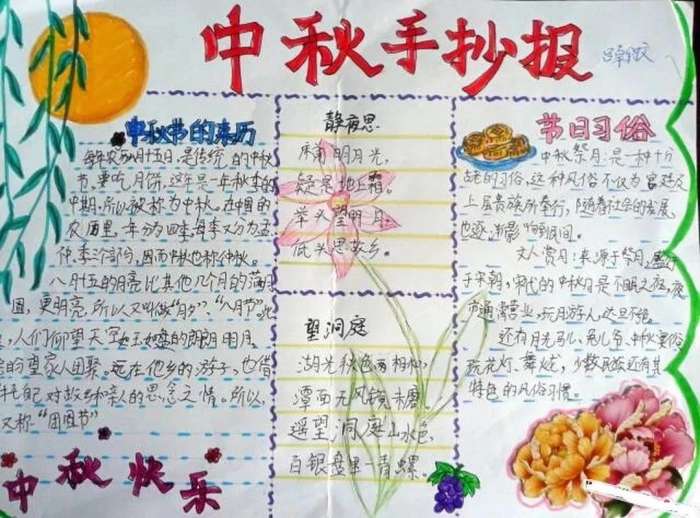 中秋手抄报
中秋节的来历
每年农历八月十五日,是传统的中秋
节。要吃月饼,这是一年秋季的
中期,所以被称为中秋。在中国的
农历里,年分为四季,每季又分为孟
仲、季三个部分,因而中秋也称仲秋。
八月十五的月亮比其他几个月的满月
圆,更明亮,所以又叫做“月夕”,“八月节”。此
,人们仰望天空如玉如盘的朗朗明月,
会的望家人团聚。远在他乡的游子,也借
托自己对故乡和亲人的思念之情。所以,
又称“团圆节”
中秋快乐
静夜思
床前明月光,
疑是地上霜。
举头望明月,
低头思故乡。
望洞庭
湖光秋色两相和,
潭面无风镜未磨。
遥望洞庭山水色,
百银盘里一青螺。
节日习俗
中秋祭月:是一种十分
古老的习俗,这种风俗不仅为宫廷及
上层贵族所奉行,随着社会的发展,
也逐渐影响到民间。
文人赏月:来源于祭月,盛行
于宋朝,宋代的中秋日是不眠之夜,夜
市通宵营业,玩月游人,达旦不绝。
还有月光马儿、兔儿爷、中秋宴俗、
玩花灯、舞火龙,少数民族还有其
特色的风俗习惯。